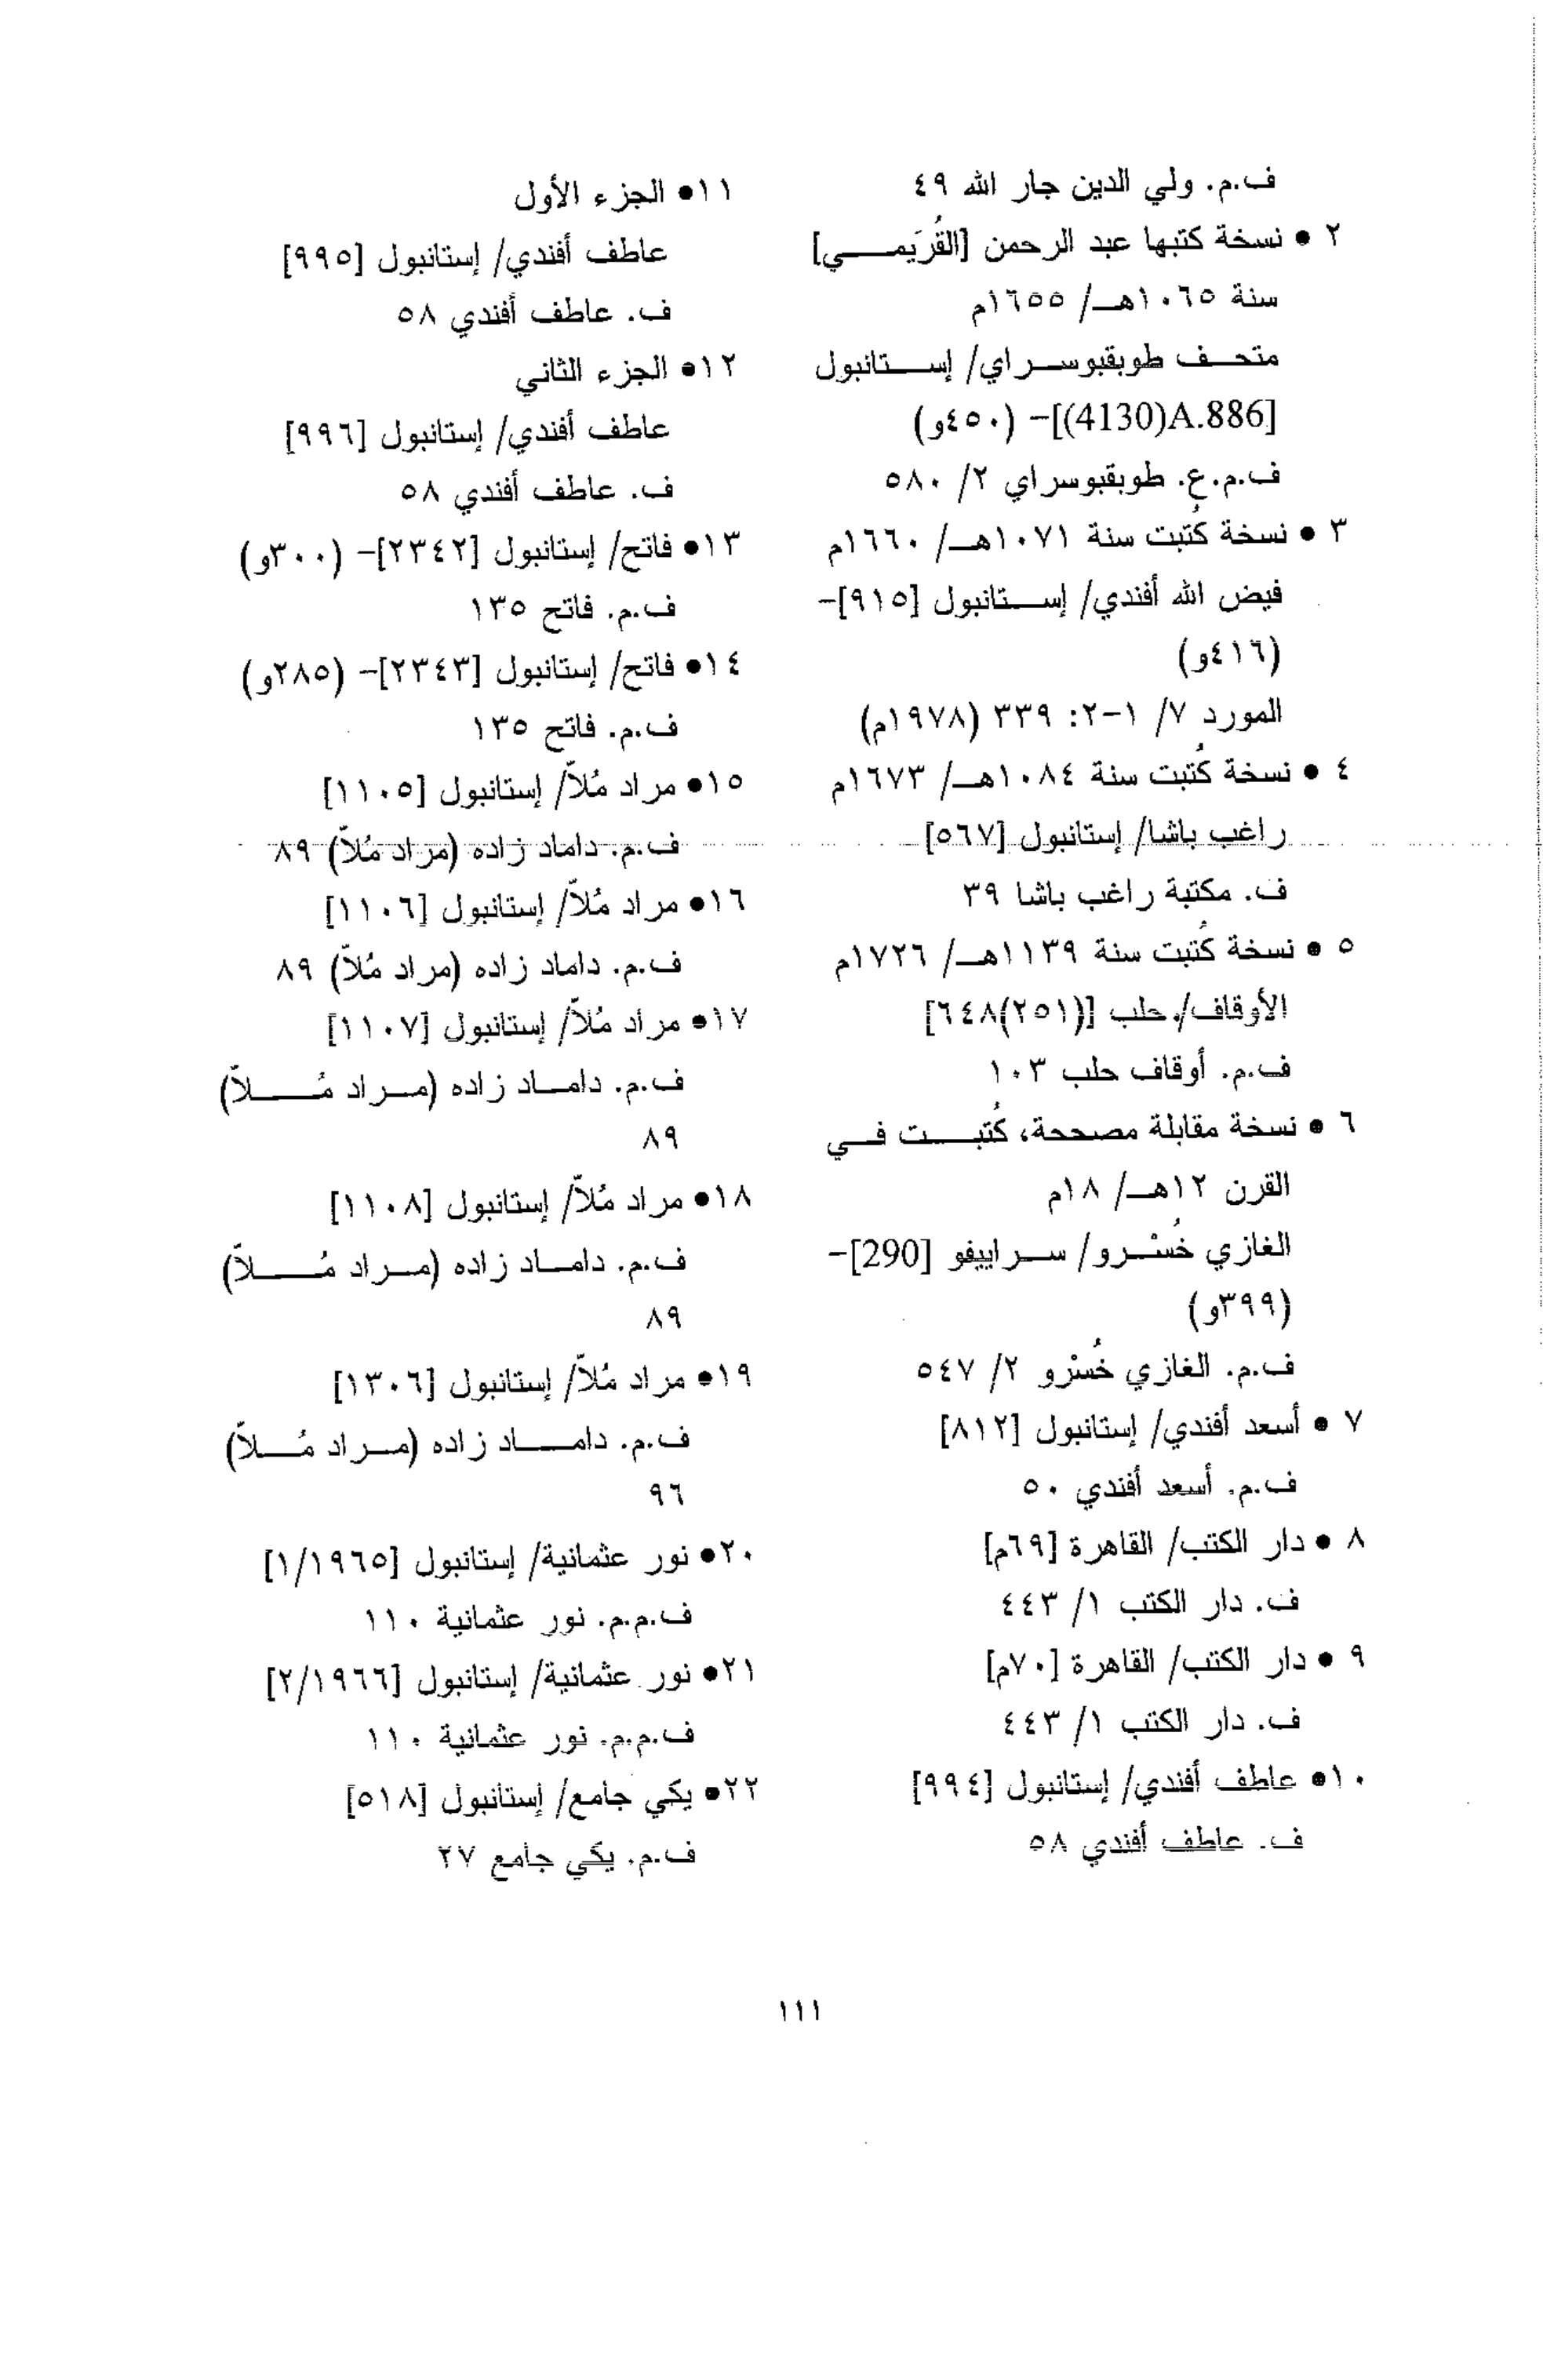 ف.م. ولي الدين جار الله ٤٩
٢ • نسخة كتبها عبد الرحمن [القُرَيمي]
سنة ١٠٦٥هـ/ ١٦٥٥م
متحف طوبقبوسراي/ إستانبول
[4130)A.886)]- (٤٥٠و)
ف.م.ع. طوبقبوسراي ٢/ ٥٨٠
٣ • نسخة كُتبت سنة ١٠٧١هـ/ ١٦٦٠م
فيض الله أفندي/ إستانبول [٩١٥]-
(٤١٦و)
المورد ٧/ ١-٢: ٣٣٩ (١٩٧٨م)
٤ • نسخة كُتبت سنة ١٠٨٤هـ/ ١٦٧٣م
راغب باشا/ إستانبول [٥٦٧]
ف. مكتبة راغب باشا ٣٩
٥ • نسخة كُتبت سنة ١١٣٩هـ/ ١٧٢٦م
الأوقاف/ حلب [(٢٥١)٦٤٨]
ف.م. أوقاف حلب ١٠٣
٦ • نسخة مقابلة مصححة، كُتبت في
القرن ١٢هـ/ ١٨م
الغازي خُسْرو/ سراييفو [290]-
(٣٩٩و)
ف.م. الغازي خُسْرو ٢/ ٥٤٧
٧ • أسعد أفندي/ إستانبول [٨١٢]
ف.م. أسعد أفندي ٥٠
٨ • دار الكتب/ القاهرة [٦٩م]
ف. دار الكتب ١/ ٤٤٣
٩ • دار الكتب/ القاهرة [٧٠م]
ف. دار الكتب ١/ ٤٤٣
١٠• عاطف أفندي/ إستانبول [٩٩٤]
ف. عاطف أفندي ٥٨
١١• الجزء الأول
عاطف أفندي/ إستانبول [٩٩٥]
ف. عاطف أفندي ٥٨
١٢• الجزء الثاني
عاطف أفندي/ إستانبول [٩٩٦]
ف. عاطف أفندي ٥٨
١٣• فاتح/ إستانبول [٢٣٤٢]- (٣٠٠و)
ف.م. فاتح ١٣٥
١٤• فاتح/ إستانبول [٢٣٤٣]- (٢٨٥و)
ف.م. فاتح ١٣٥
١٥• مراد مُلاّ/ إستانبول [١١٠٥]
ف.م. داماد زاده (مراد مُلاّ) ٨٩
١٦• مراد مُلاّ/ إستانبول [١١٠٦]
ف.م. داماد زاده (مراد مُلاّ) ٨٩
١٧• مراد مُلاّ/ إستانبول [١١٠٧]
ف.م. داماد زاده (مراد مُلاّ)
٨٩
١٨• مراد مُلاّ/ إستانبول [١١٠٨]
ف.م. داماد زاده (مراد مُلاّ)
٨٩
١٩• مراد مُلاّ/ إستانبول [١٣٠٦]
ف.م. داماد زاده (مراد مُلاّ)
٩٦
٢٠• نور عثمانية/ إستانبول [١/١٩٦٥]
ف.م.م. نور عثمانية ١١٠
٢١• نور عثمانية/ إستانبول [٢/١٩٦٦]
ف.م.م. نور عثمانية ١١٠
٢٢• يكي جامع/ إستانبول [٥١٨]
ف.م. يكي جامع ٢٧
١١١